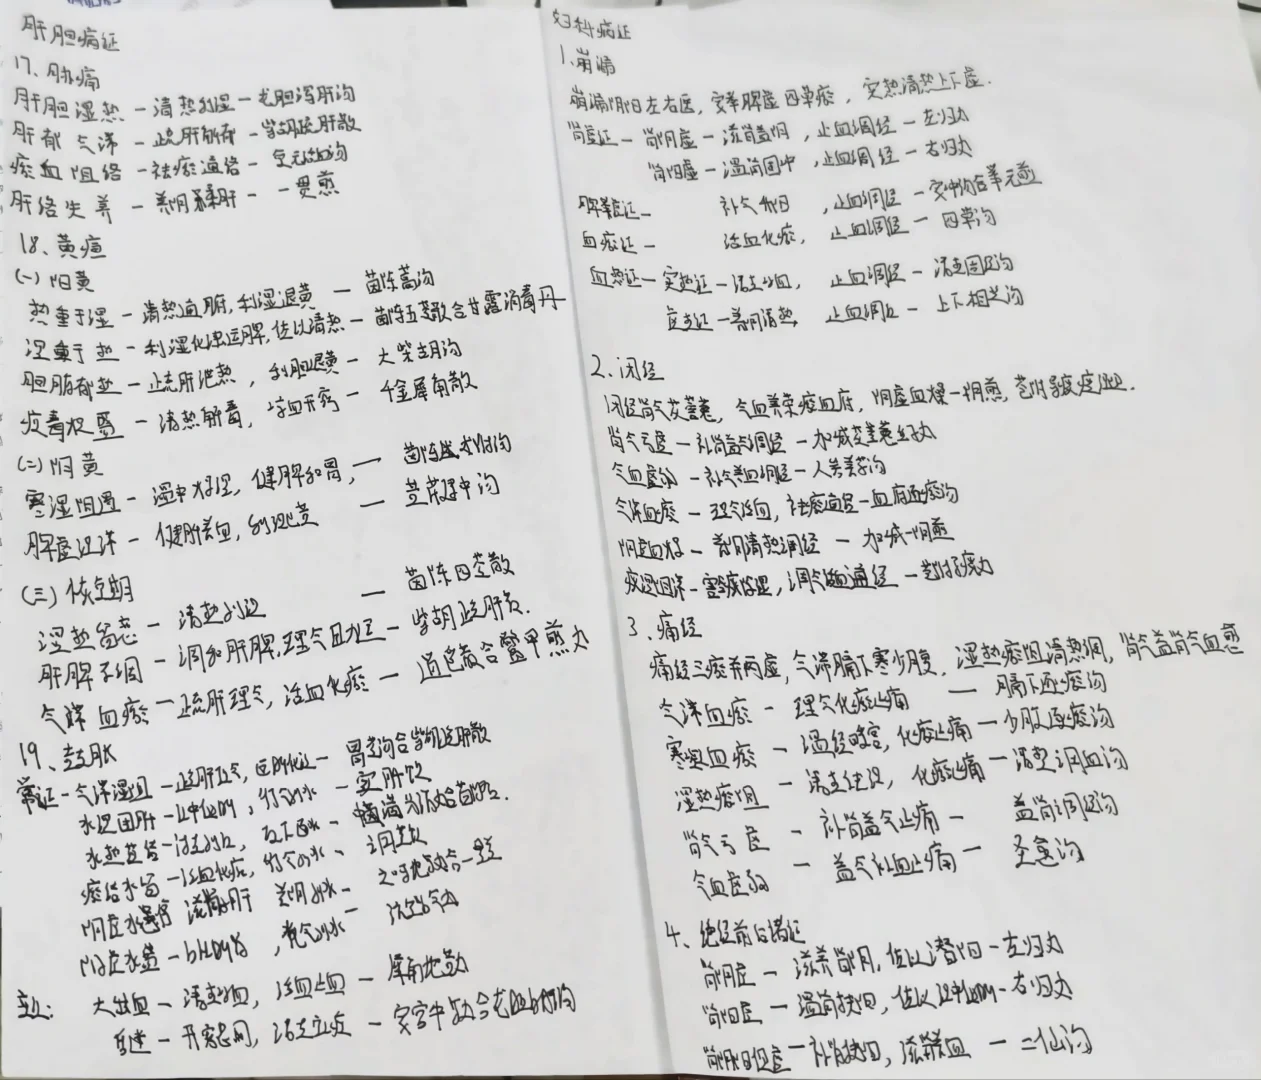 肝胆病证
17、胁痛
肝胆湿热 - 清热利湿 - 龙胆泻肝汤
肝郁气滞 - 疏肝解郁 - 柴胡疏肝散
瘀血阻络 - 祛瘀通络 - 复元活血汤
肝络失养 - 养阴柔肝 - 一贯煎
18、黄疸
(一) 阳黄
热重于湿 - 清热通腑,利湿退黄 — 茵陈蒿汤
湿重于热 - 利湿化浊运脾,佐以清热 - 茵陈五苓散合甘露消毒丹
胆腑郁热 - 疏肝泄热,利胆退黄 - 大柴胡汤
疫毒炽盛 - 清热解毒,凉血开窍 - 千金犀角散
(二) 阴黄
寒湿阻遏 - 温中化湿,健脾和胃, — 茵陈术附汤
脾虚湿滞 - 健脾养血,利湿退黄 — 黄芪建中汤
(三) 恢复期
湿热留恋 - 清热利湿 — 茵陈四苓散
肝脾不调 - 调和肝脾,理气助运 - 柴胡疏肝散.
气滞血瘀 - 疏肝理气,活血化瘀 — 逍遥散合鳖甲煎丸
19、鼓胀
常证 - 气滞湿阻 - 疏肝理气,运脾化湿 - 胃苓汤合柴胡疏肝散
水湿困脾 - 温中健脾,行气利水 - 实脾饮
水热蕴结 - 清热利湿,攻下逐水 - 中满分消丸合茵陈蒿汤.
瘀结水留 - 活血化瘀,行气利水 - 调营饮
阴虚水停 滋肾柔肝 养阴利水 -
阳虚水盛 -
变证: 大出血 - 清热凉血,活血止血 — 犀角地黄
昏迷 -
妇科病证
1、崩漏
崩漏阴阳左右医,安举脾虚四草瘀,实热清热上下虚.
肾虚证 - 肾阴虚 - 滋肾益阴,止血调经 - 左归丸
肾阳虚 - 温肾固冲,止血调经 - 右归丸
脾虚证 - 补气,止血调经 - 安冲汤合举元煎
血瘀证 - 活血化瘀,止血调经 - 四草汤
血热证 - 实热证 - 清热凉血,止血调经 - 清热固经汤
虚热证 - 养阴清热,止血调经 - 上下相资汤
2、闭经
肾气亏虚 - 补肾益气调经 - 加减苁蓉菟丝丸
气血虚弱 - 补气养血调经 - 人参养荣汤
气滞血瘀 - 理气活血,祛瘀通经 - 血府逐瘀汤
阴虚血燥 - 养阴清热调经 - 加减一阴煎
3、痛经
痛经三瘀夹两虚,气滞膈下寒少腹,湿热瘀阻清热调,肾气益肾气血愈
气滞血瘀 - 理气化瘀止痛 — 膈下逐瘀汤
寒凝血瘀 - 温经暖宫,化瘀止痛 - 少腹逐瘀汤
湿热瘀阻 - 清热化湿,化瘀止痛 - 清热调血汤
肾气亏虚 - 补肾益气止痛 - 益肾调经汤
气血虚弱 - 益气补血止痛 - 圣愈汤
4、绝经前后诸证
肾阴虚 - 滋养肾阴,佐以潜阳 - 左归丸
肾阳虚 - 温肾扶阳,佐以温中健脾 - 右归丸
肾阴阳俱虚 - 补肾扶阳,滋养冲任 - 二仙汤